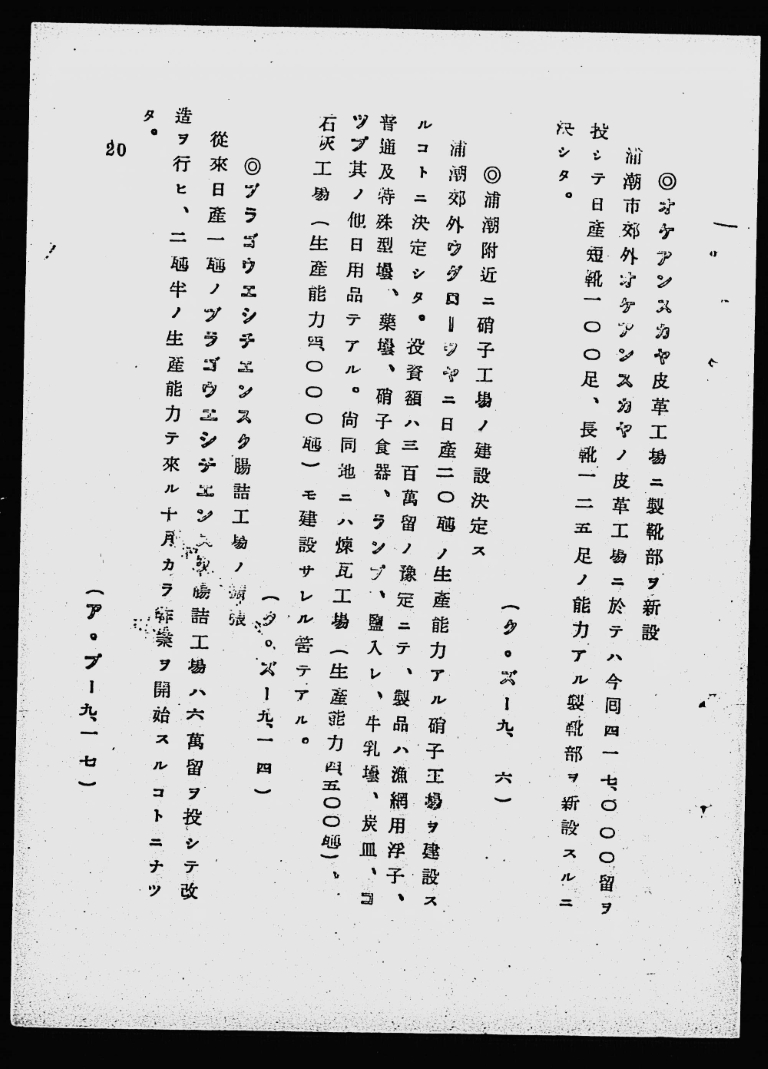 ◎オケアンスカヤ皮革工場ニ製靴部ヲ新設
浦潮市郊外オケアンスカヤノ皮革工場ニ於テハ今囘四一七、〇〇〇留ヲ
投シテ日産短靴一〇〇足、長靴一二五足ノ能力アル製靴部ヲ新設スルニ
決シタ。
(ク。ズー九、六)
◎浦潮附近ニ硝子工場ノ建設決定ス
浦潮郊外ウグローワヤニ日産二〇瓲ノ生産能力アル硝子工場ヲ建設ス
ルコトニ決定シタ。投資額ハ三百萬留ノ豫定ニテ、製品ハ漁網用浮子、
普通及特殊型壜、藥壜、硝子食器、ランプ、鹽入レ、牛乳壜、炭皿、コ
ツプ其ノ他日用品テアル。尙同地ニハ煉瓦工場(生産能力四、五〇〇瓲)、
石灰工場(生産能力四、〇〇〇瓲)モ建設サレル筈テアル。
(ク。ズー九、一四)
◎ブラゴウエシチエンスク腸詰工場ノ擴張
從來日産一瓲ノブラゴウエシチエンスク腸詰工場ハ六萬留ヲ投シテ改
造ヲ行ヒ、二瓲半ノ生産能力テ來ル十月カラ作業ヲ開始スルコトニナツ
タ。
(ア。プー九、一七)
20